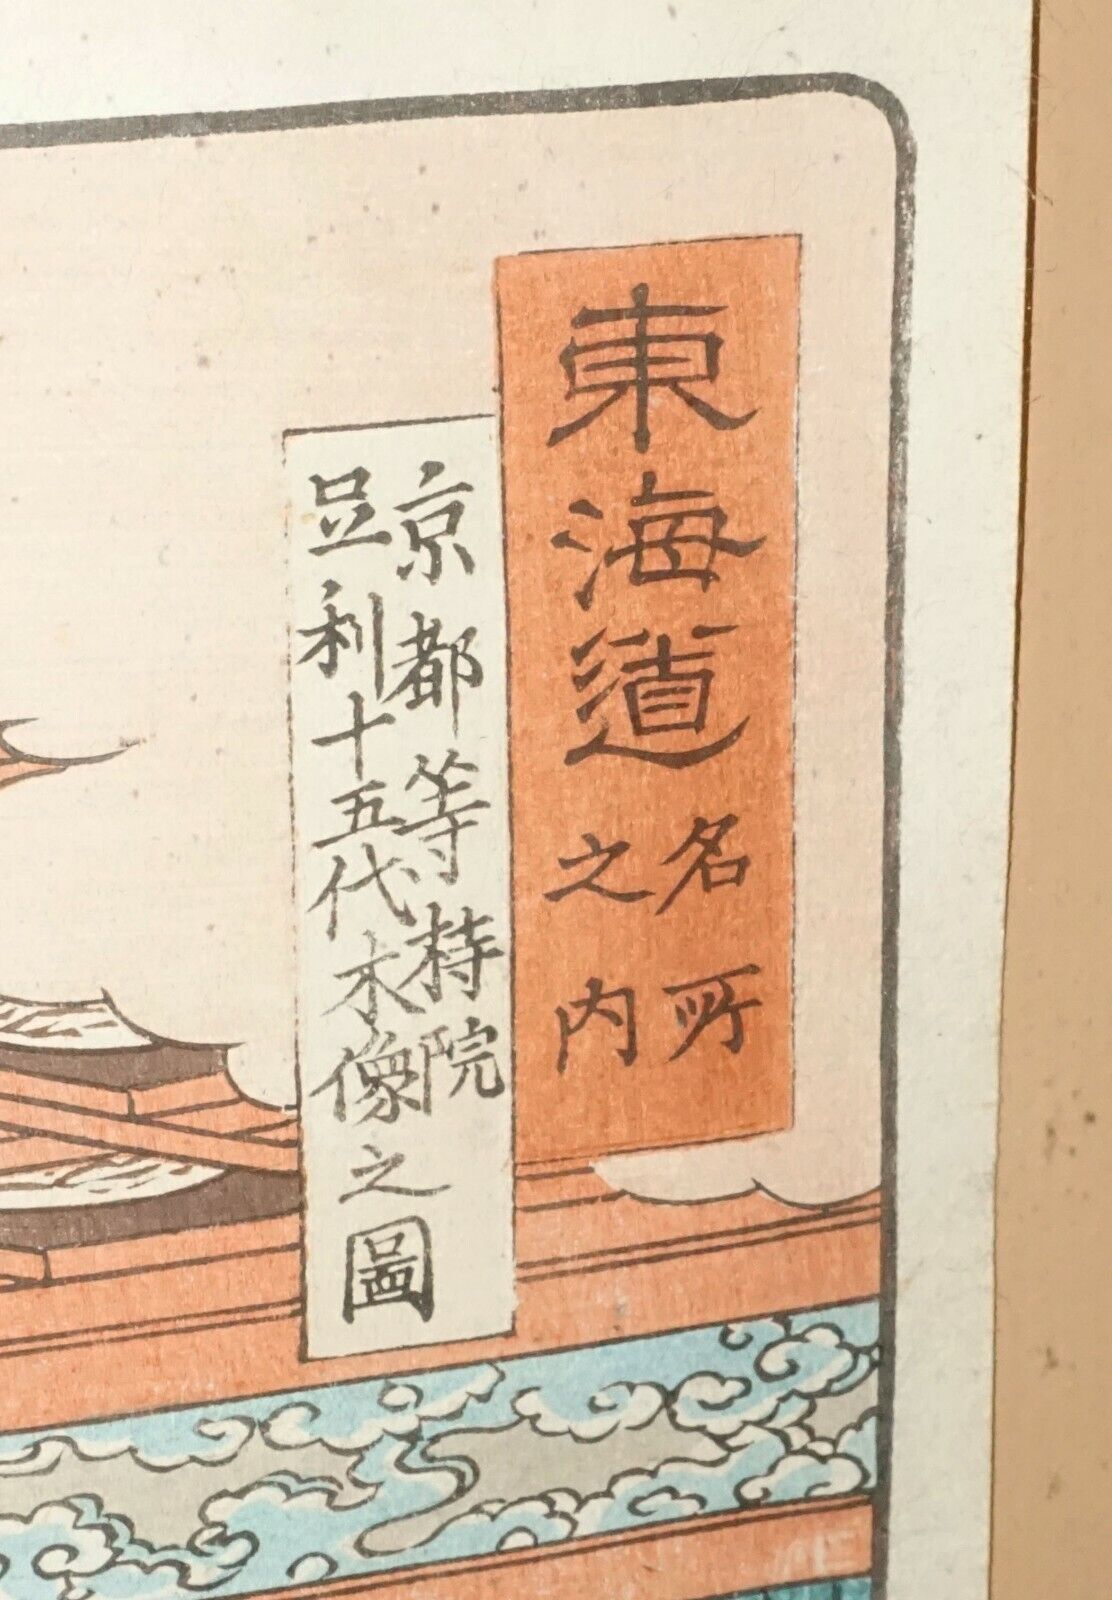 東海道
名所
之内
京都等持院
足利十五代木像之圖